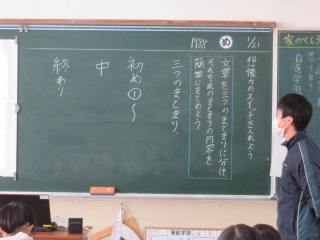 1/21
め
P188
想像力のスイッチを入れよう
文章を三つのまとまりに分け、
それぞれのまとまりの内容を
簡単にまとめよう。
三つのまとまり、
初め①〜
中
終わり